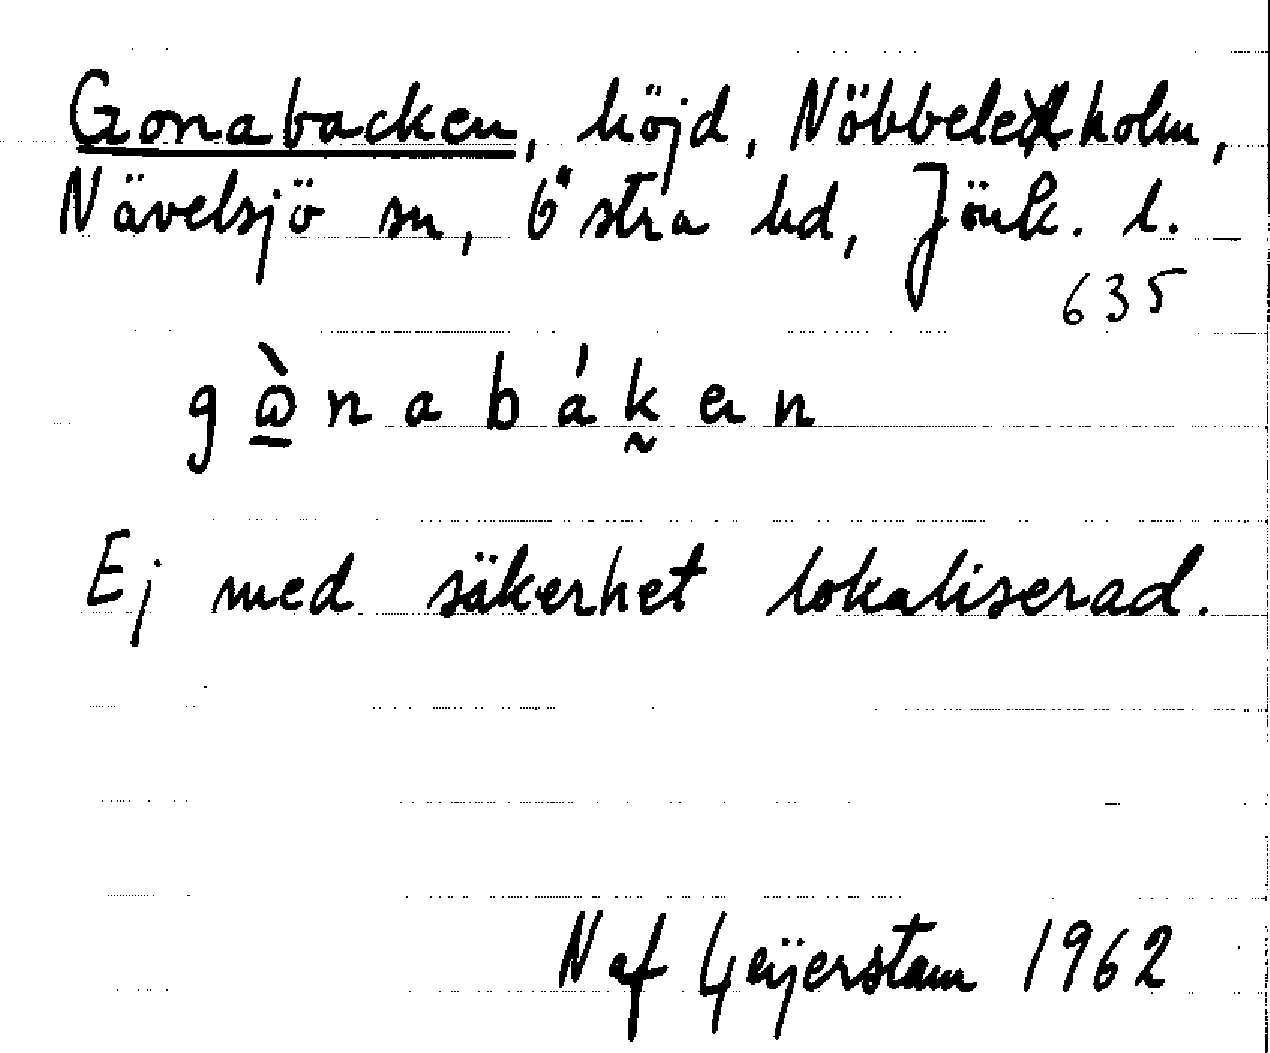 Gonabacken, höjd, Nöbbeleholm,
Nävelsjö sn, Östra hd, Jönk. l.
635
gò̱nabák̰ən
Ej med säkerhet lokaliserad.
N af Geijerstam 1962